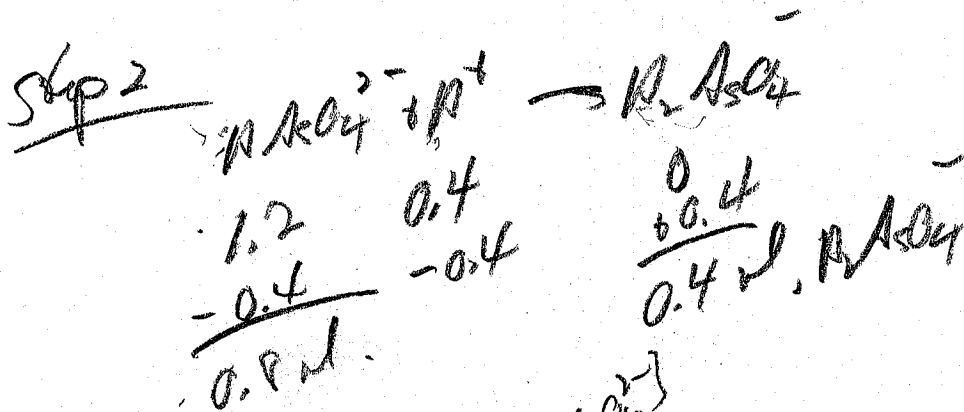 Step 2
HAsO₄²⁻ + H⁺ → H₂AsO₄⁻
1.2 0.4 0
-0.4 -0.4 +0.4
0.8 ml. 0.4 ml. H₂AsO₄⁻